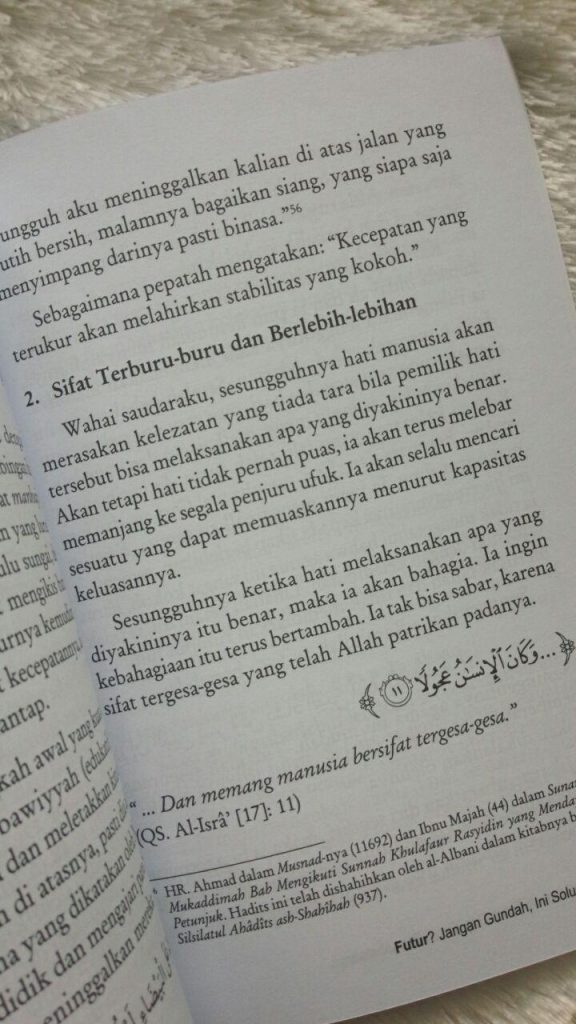 ungguh aku meninggalkan kalian di atas jalan yang
utih bersih, malamnya bagaikan siang, yang siapa saja
menyimpang darinya pasti binasa.”56
Sebagaimana pepatah mengatakan: “Kecepatan yang
terukur akan melahirkan stabilitas yang kokoh.”
2. Sifat Terburu-buru dan Berlebih-lebihan
Wahai saudaraku, sesungguhnya hati manusia akan
merasakan kelezatan yang tiada tara bila pemilik hati
tersebut bisa melaksanakan apa yang diyakininya benar.
Akan tetapi hati tidak pernah puas, ia akan terus melebar
memanjang ke segala penjuru ufuk. Ia akan selalu mencari
sesuatu yang dapat memuaskannya menurut kapasitas
keluasannya.
Sesungguhnya ketika hati melaksanakan apa yang
diyakininya itu benar, maka ia akan bahagia. Ia ingin
kebahagiaan itu terus bertambah. Ia tak bisa sabar, karena
sifat tergesa-gesa yang telah Allah patrikan padanya.
﴿...وَكَانَ ٱلْإِنسَٰنُ عَجُولًا ١١﴾
“ ... Dan memang manusia bersifat tergesa-gesa.”
(QS. Al-Isrâ’ [17]: 11)
HR. Ahmad dalam Musnad-nya (11692) dan Ibnu Majah (44) dalam Suna
Mukaddimah Bab Mengikuti Sunnah Khulafaur Rasyidin yang Menda
Petunjuk. Hadits ini telah dishahihkan oleh al-Albani dalam kitabnya b
Silsilatul Ahâdîts ash-Shahîhah (937).
Futur? Jangan Gundah, Ini Solu
at
n yang
ulu sungai,
mengikis
urnya kemud
kecepatannya
antap.
kah awal yang
bawiyyah (eduka
dan meletakkan
n di atasnya, pasti
na yang dikatakan
didik dan mengajari
eninggalkan